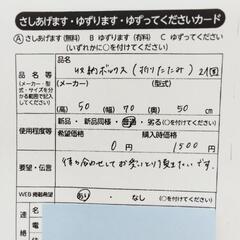 さしあげます・ゆずります・ゆずってくださいカード
Ⓐ さしあげます(無料) B ゆずります(有料) C ゆずってください
(いずれかに○を付けてください)
品名等
(メーカー・型式・サイズを分かる範囲で記入してください)
品名
収納ボックス(折りたたみ) 2個
(メーカー) (型式)
(高) 50 (幅) 70 (奥) 50 cm
使用程度等
新品・新品同様・普通・劣る(○を付けてください)
希望価格 購入時価格
0 円 1500 円
要望・伝言
待ち合わせしてお受けとり頂きたいです。
WEB掲載希望
あり・なし(○を付けてください)
連
電